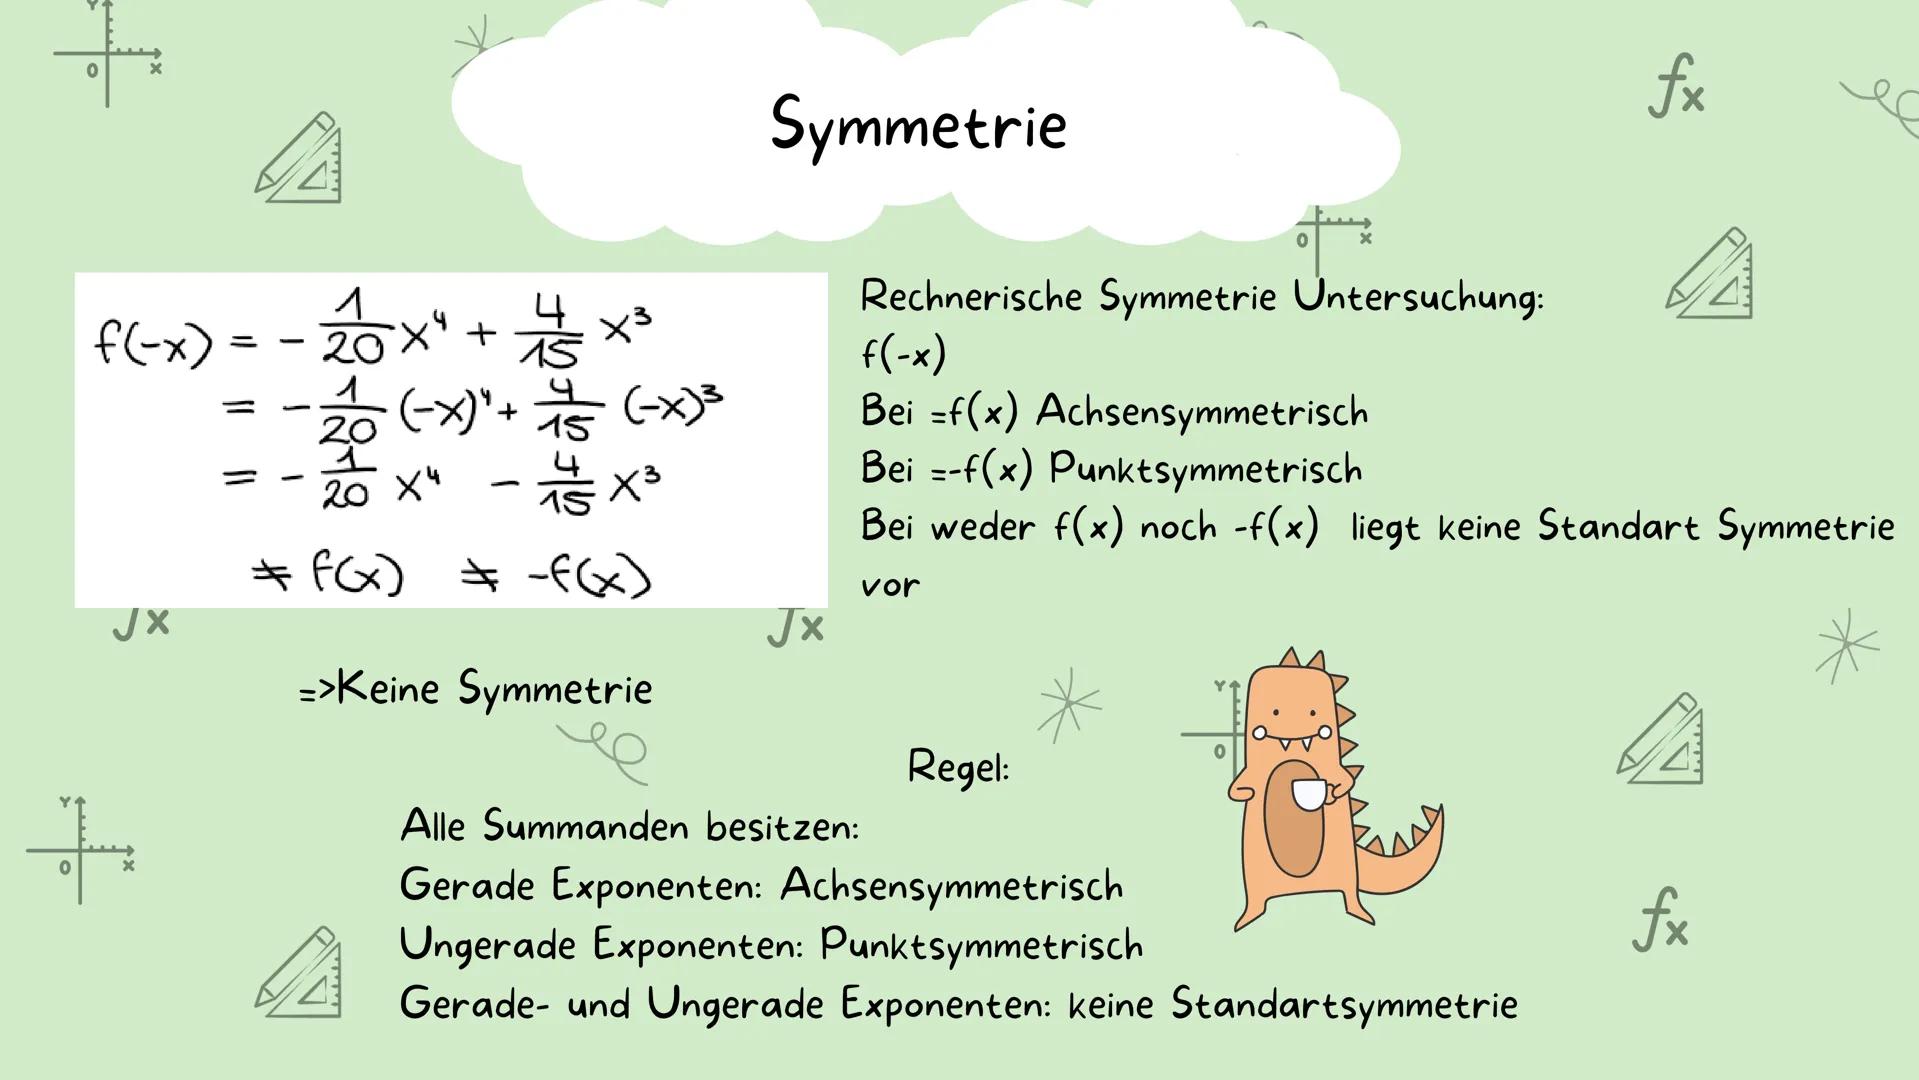 Symmetrie
f(-x) = - 1/20 x⁴ + 4/15 x³
= - 1/20 (-x)⁴ + 4/15 (-x)³
= - 1/20 x⁴ - 4/15 x³
≠ f(x) ≠ -f(x)
=>Keine Symmetrie
Rechnerische Symmetrie Untersuchung:
f(-x)
Bei =f(x) Achsensymmetrisch
Bei =-f(x) Punktsymmetrisch
Bei weder f(x) noch -f(x) liegt keine Standart Symmetrie
vor
Regel:
Alle Summanden besitzen:
Gerade Exponenten: Achsensymmetrisch
Ungerade Exponenten: Punktsymmetrisch
Gerade- und Ungerade Exponenten: keine Standartsymmetrie
Y
0 x
fx
0 x
fx
fx
Y
0
Y
0 x
fx